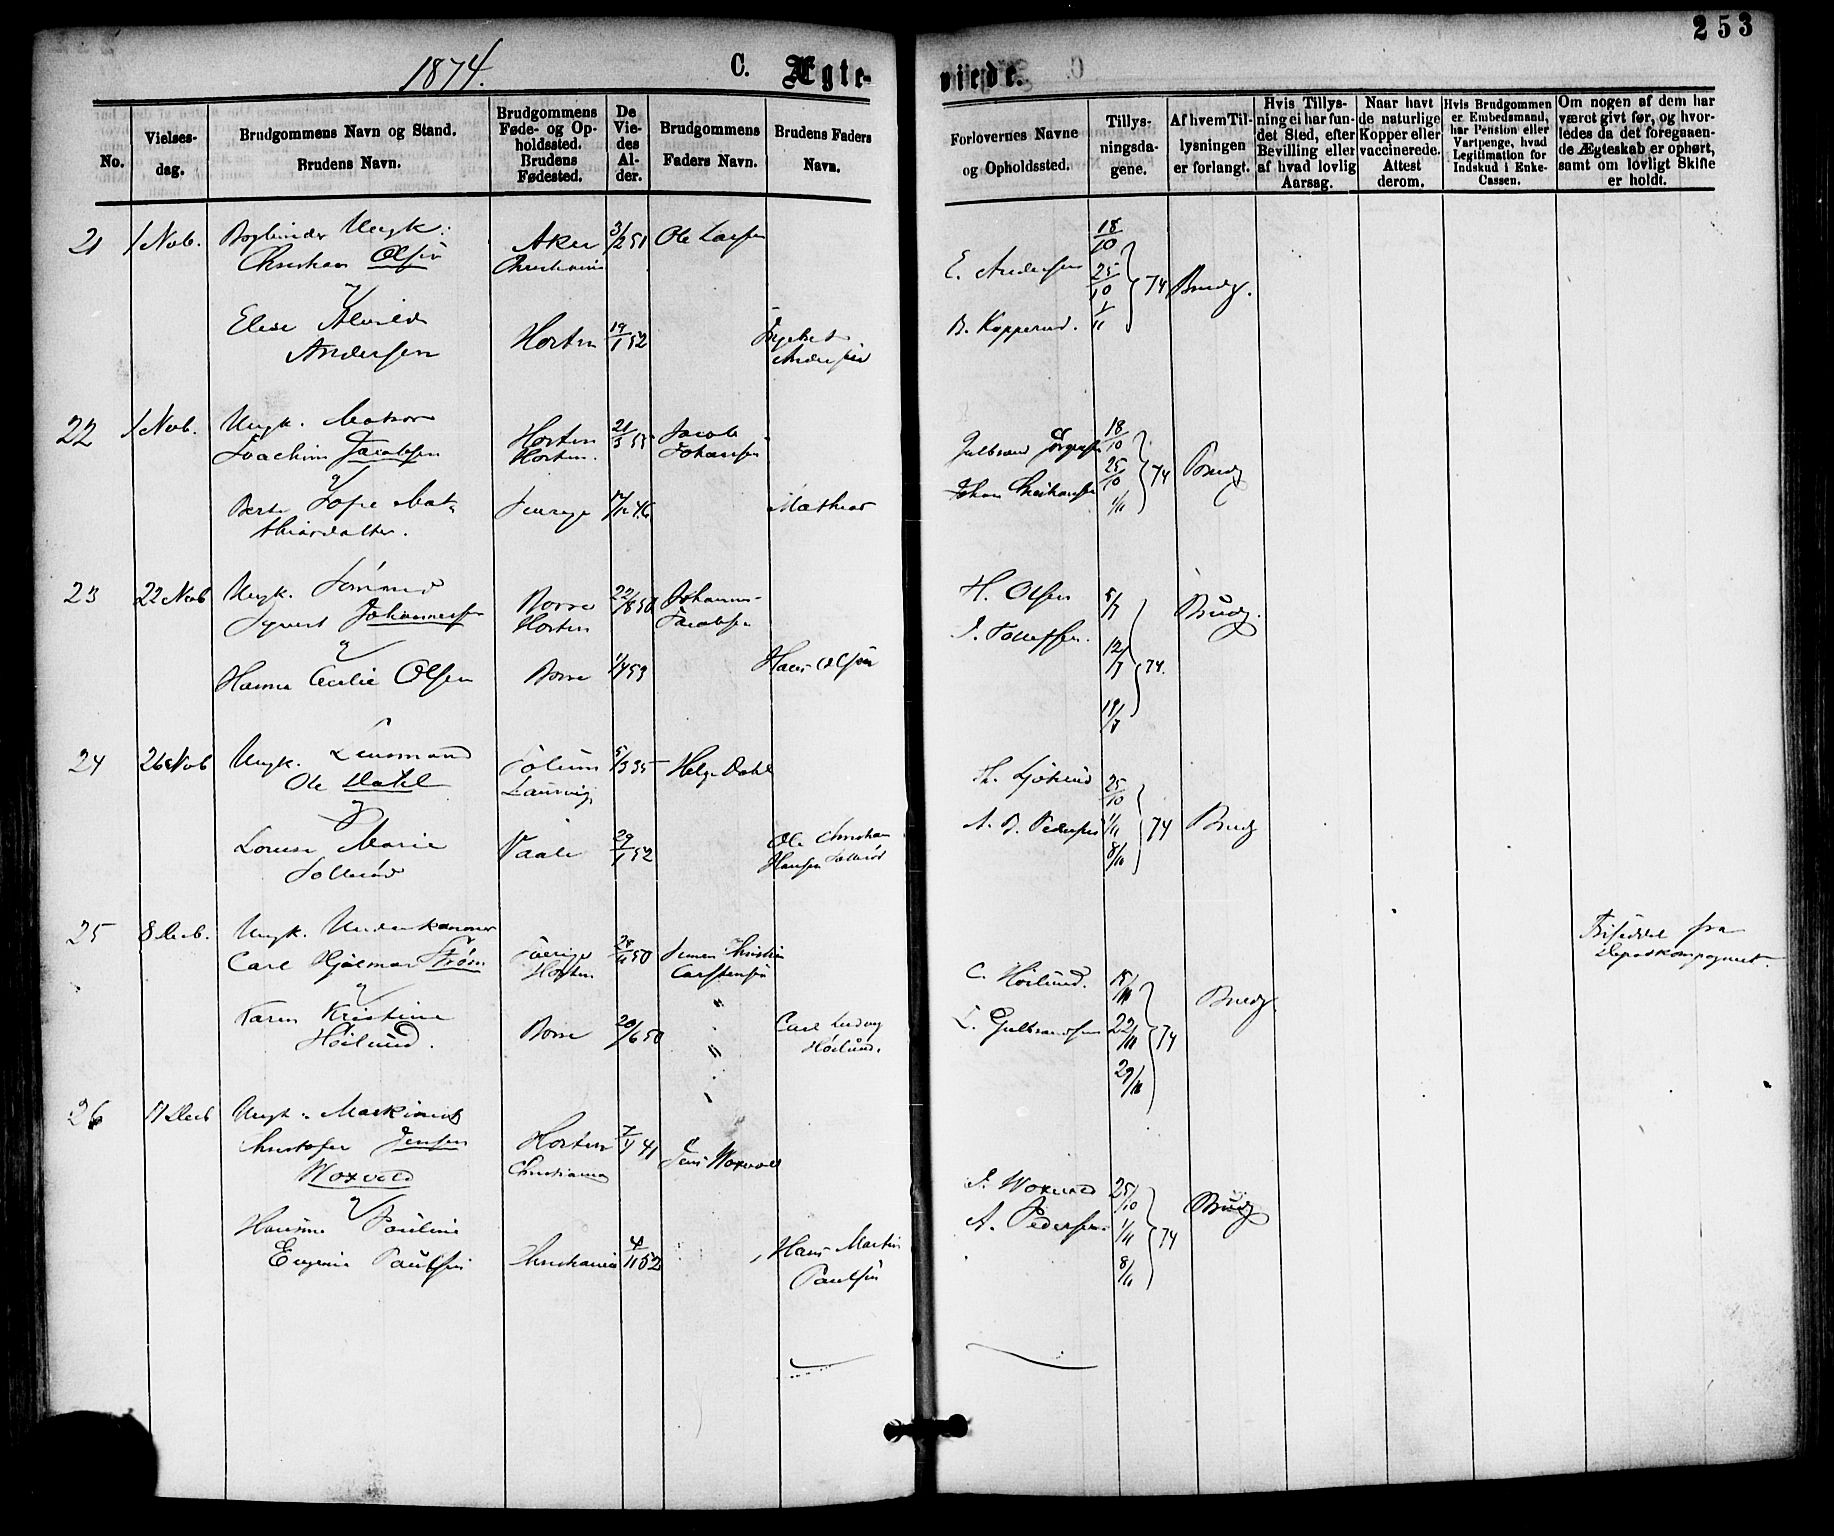 253
1874.
C. Ægteviede.
No.
Vielsesdag.
Brudgommens Navn og Stand.
Brudens Navn.
Brudgommens Føde- og Opholdssted.
Brudens Fødested.
De Viedes Alder.
Brudgommens Faders Navn.
Brudens Faders Navn.
Forlovernes Navne og Opholdssted.
Tillysningsdagene.
Af hvem Tillysningen er forlangt.
Hvis Tillysning ei har fundet Sted, efter Bevilling eller af hvad lovlig Aarsag.
Naar havt de naturlige Kopper eller vaccinerede. Attest derom.
Hvis Brudgommen er Embedsmand, har Pension eller Vartpenge, hvad Legitimation for Indskud i Enke-Cassen.
Om nogen af dem har været givt før, og hvorledes da det foregaaende Ægteskab er ophørt, samt om lovligt Skifte er holdt.
21 1 Nov. Bogbinder Ungk. Aker 3/2 51 Ole Larsen
Christian Olsen Christiania
E. Andersen 18/10 25/10 1/11 74 Brudg.
B. Kopperud.
Elise Alvilde Horten 19/1 52
Andersen Andersen
22 1 Nov. Ungk. Matros Horten 21/3 55 Jacob
Joachim Jacobsen Horten. Johansen
Gulbrand Jørgensen 18/10 25/10 1/11 74 Brudg
Johan
Berte Sofie Mat- 46 Mathias
thiasdatter.
23 22 Nov Ungk. Tømmed Borre 22/8 50 Johannes
Syvert Johannessen Horten Jacobsen
H. Olsen 5/7 12/7 19/7 74. Brudg.
J. Tollefsen.
Hanna Cecilie Olsen Borre 1/4 53 Hans Olsen
24 26 Nov Ungk. Lensmand Solum 5/3 35 Helge Dahl
Ole Dahl Laurvig
25/10 1/11 8/11 74 Brudg
A. B. Pedersen
Louise Marie Vaale 29/1 52 Ole Christian
Solerød Hansen Solerød
25 8 Decb. Ungk. Underkanoner Sverige 28/11 50 Simen Christian
Carl Hjalmar Strøm Horten Carstensen
Friseddel fra
Depotkompagniet.
C. Høilund. 15/11 22/11 29/11 74 Brudg.
L. Gulbrandsen
Karen Kristine Borre 20/6 50 Carl Ludvig
Høilund. Høilund.
26 11 Decb Ungk. Maskinist
Christofer Jensen Horten 7/1 41 Jens Woxvold
Woxvold Christiania
J. Woxvold 25/10 1/11 8/11 74 Brudg
A. Pedersen
Hansine Pauline
Eugenie Paulsen Christiania 4/11 52 Hans Martin
Paulsen